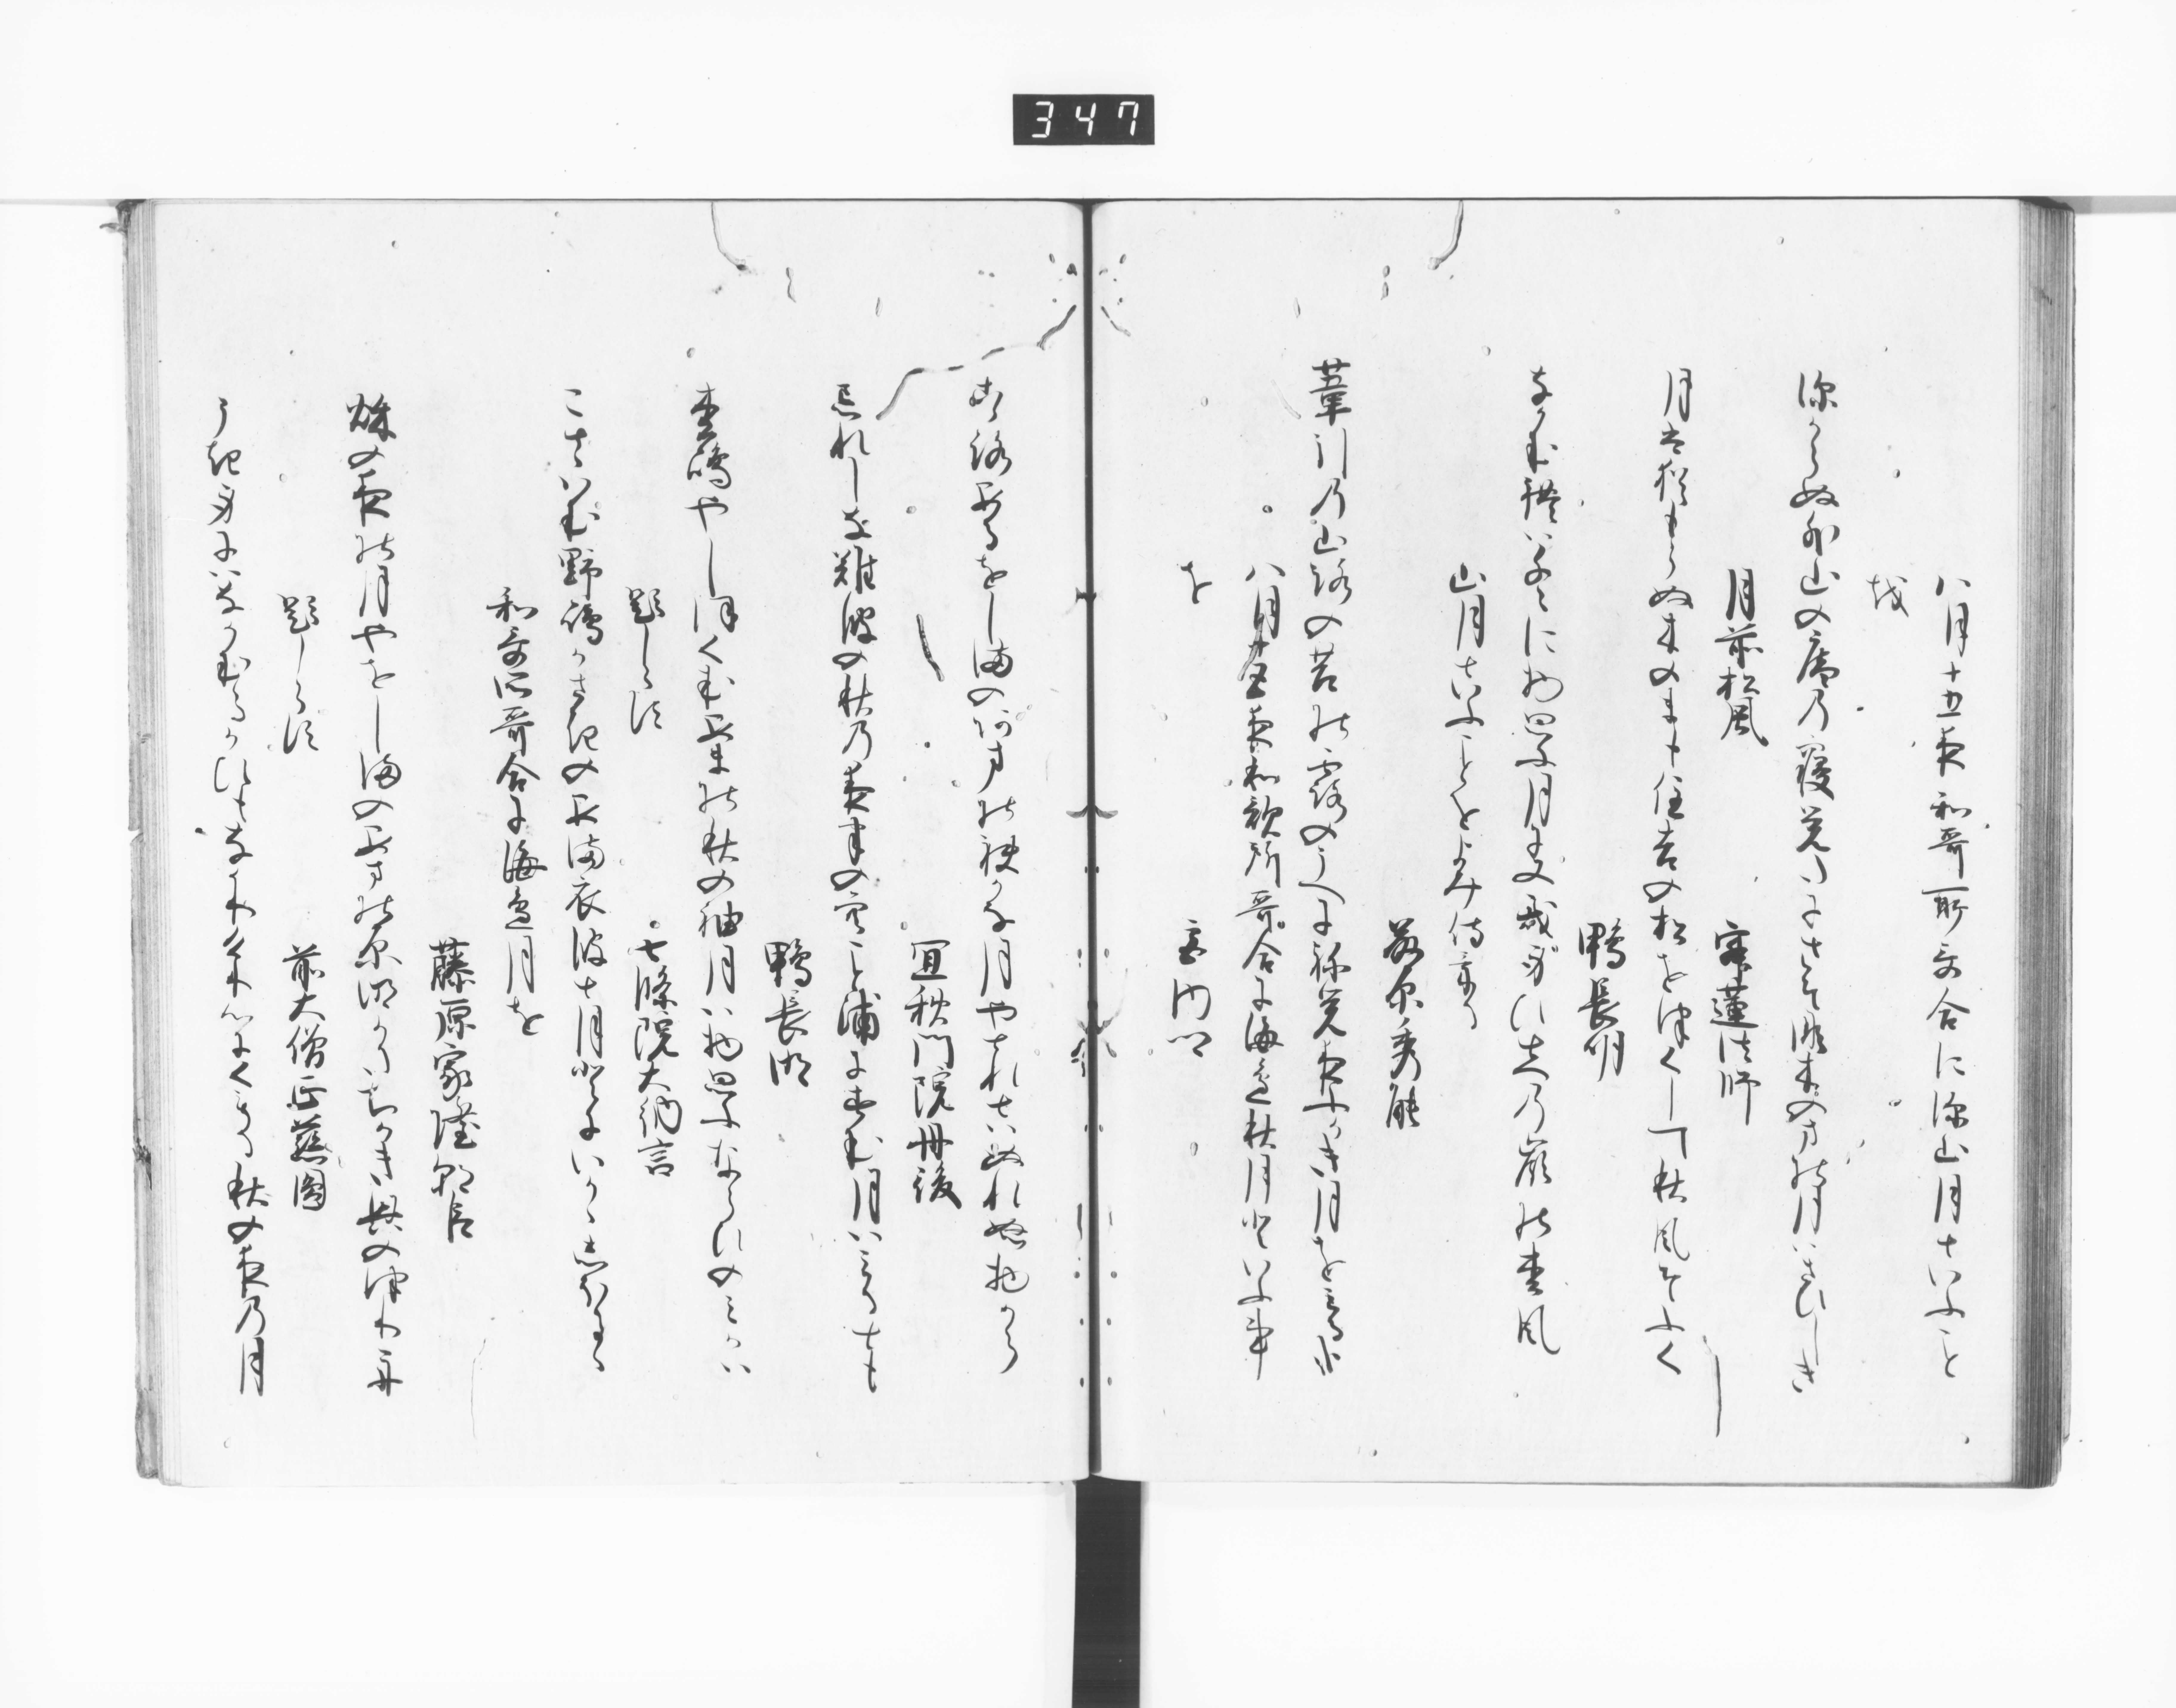 347
八月十五夜和哥所哥合に深山月といふこと
を
深からぬ外山の庵の寝覚たにさそな木のまの月はさひしき
月前松風
寂蓮法師
月は猶もらぬ木のまも住吉の松をつくして秋風そふく
鴨長明
なかむれはちゝに物思ふ月に又我身ひとつの嶺の松風
山月といふことをよみ侍ける
藤原秀能
葦引の山路の苔の露のうへにね覚夜ふかき月をみる哉
八月十五夜和歌所哥合に海辺秋月といふ事
を
宮内卿
心あるをしまのあまの袂かな月やとれとはぬれぬ物から
宜秋門院丹後
忘れしな難波の秋の夜半の空こと浦にすむ月はみるとも
鴨長明
松嶋やしほくむあまの秋の袖月は物思ふならひのみかは
題しらす
七條院大納言
ことゝはむ野嶋かさきのあま衣波と月とにいかゝしほるゝ
和哥所哥合に海辺月を
藤原家隆朝臣
秋の夜の月やをしまのあまの原明かたちかき奥の津り舟
題しらす
前大僧正慈圓
うき身にはなかむるかひもなかりけり心にくもる秋の夜の月